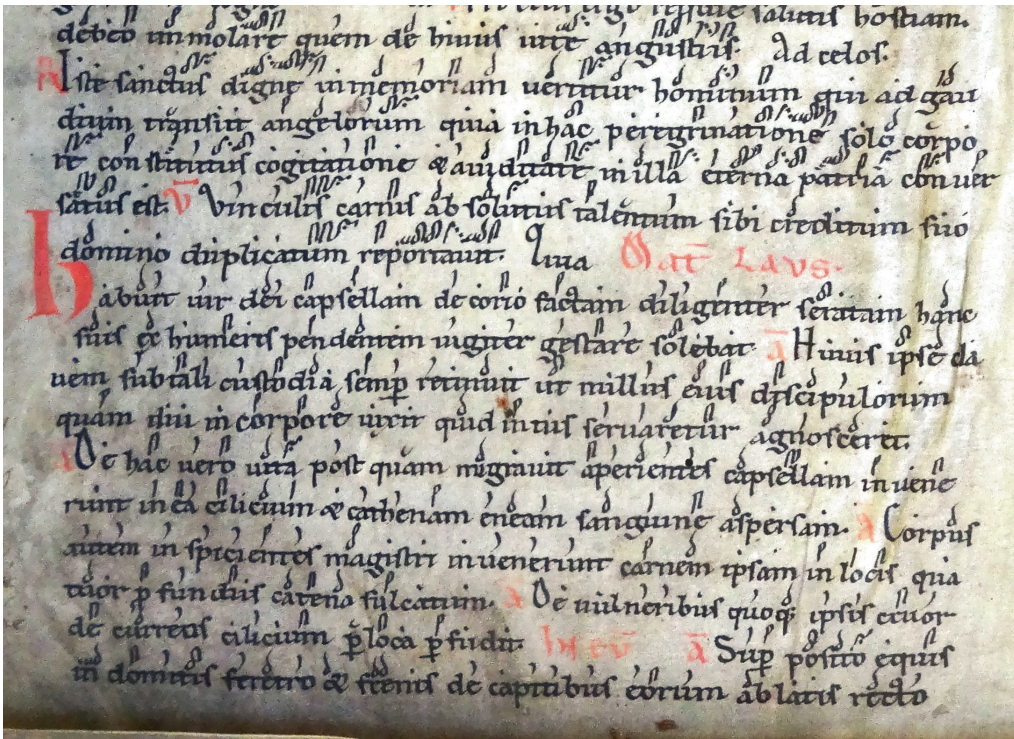 salutis hostiam.
debeo immolare quem de huius uite angustiis. Ad celos.
Iste sanctus digne in memoriam uertitur hominum qui ad gau
dium transiit angelorum quia in hac peregrinatione solo corpo
re constitutus cogitatione & auiditate in illa eterna patria conuer
satus est. V̄ Vinculis carnis absolutus talentum sibi creditum suo
domino duplicatum reportauit. Quia Mat̄ LAVS.
habuit uir dei capsellam de corio factam diligenter seratam hanc
suis ex humeris pendentem iugiter gestare solebat. ā Huius ipse cla
uem sub tali custodia semp̄ retinuit ut nullus eius discipulorum
quam diu in corpore uixit quid intus seruaretur agnosceret.
a De hac uero uita post quam migrauit aperientes capsellam inuene
runt in ea cilicium & cathenam eneam sanguine aspersam. a Corpus
autem inspicientes magistri inuenerunt carnem ipsam in locis qua
tuor p̄fundius catena sulcatum. a De uulneribus quoq; ipsis cruor
decurrens cilicium p̄ loca p̄fudit. IN EV̄ ā Sup̄ posito equis
indomitis feretro & frenis de capitibus eorum ablatis recto